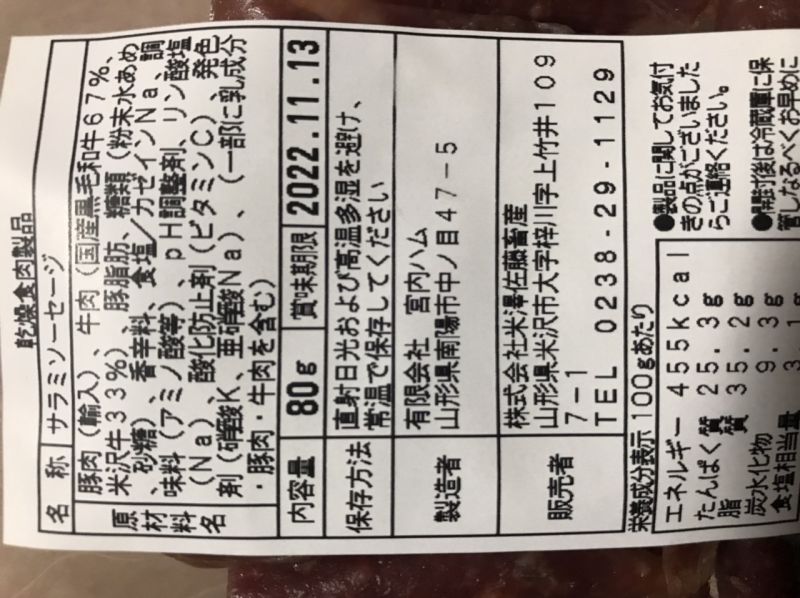 乾燥食肉製品
名称 サラミソーセージ
原材料名 豚肉（輸入）、牛肉（国産黒毛和牛67％、
米沢牛33％）、豚脂肪、糖類（粉末水あめ
、砂糖）、香辛料、食塩／カゼインNa、調
味料（アミノ酸等）、pH調整剤、リン酸塩
（Na）、酸化防止剤（ビタミンC）、発色
剤（硝酸K、亜硝酸Na）、（一部に乳成分
・豚肉・牛肉を含む）
内容量 80g 賞味期限 2022.11.13
保存方法 直射日光および高温多湿を避け、
常温で保存してください
製造者 有限会社 宮内ハム
山形県南陽市中ノ目47-5
販売者 株式会社米澤佐藤畜産
山形県米沢市大字梓川字上竹井109
7-1
TEL 0238-29-1129
栄養成分表示 100gあたり
エネルギー 455kcal
たんぱく質 25.3g
脂質 35.2g
炭水化物 9.3g
食塩相当量 3.1g
●製品に関してお気付
きの点がございました
らご連絡ください。
●開封後は冷蔵庫に保
管しなるべくお早めに